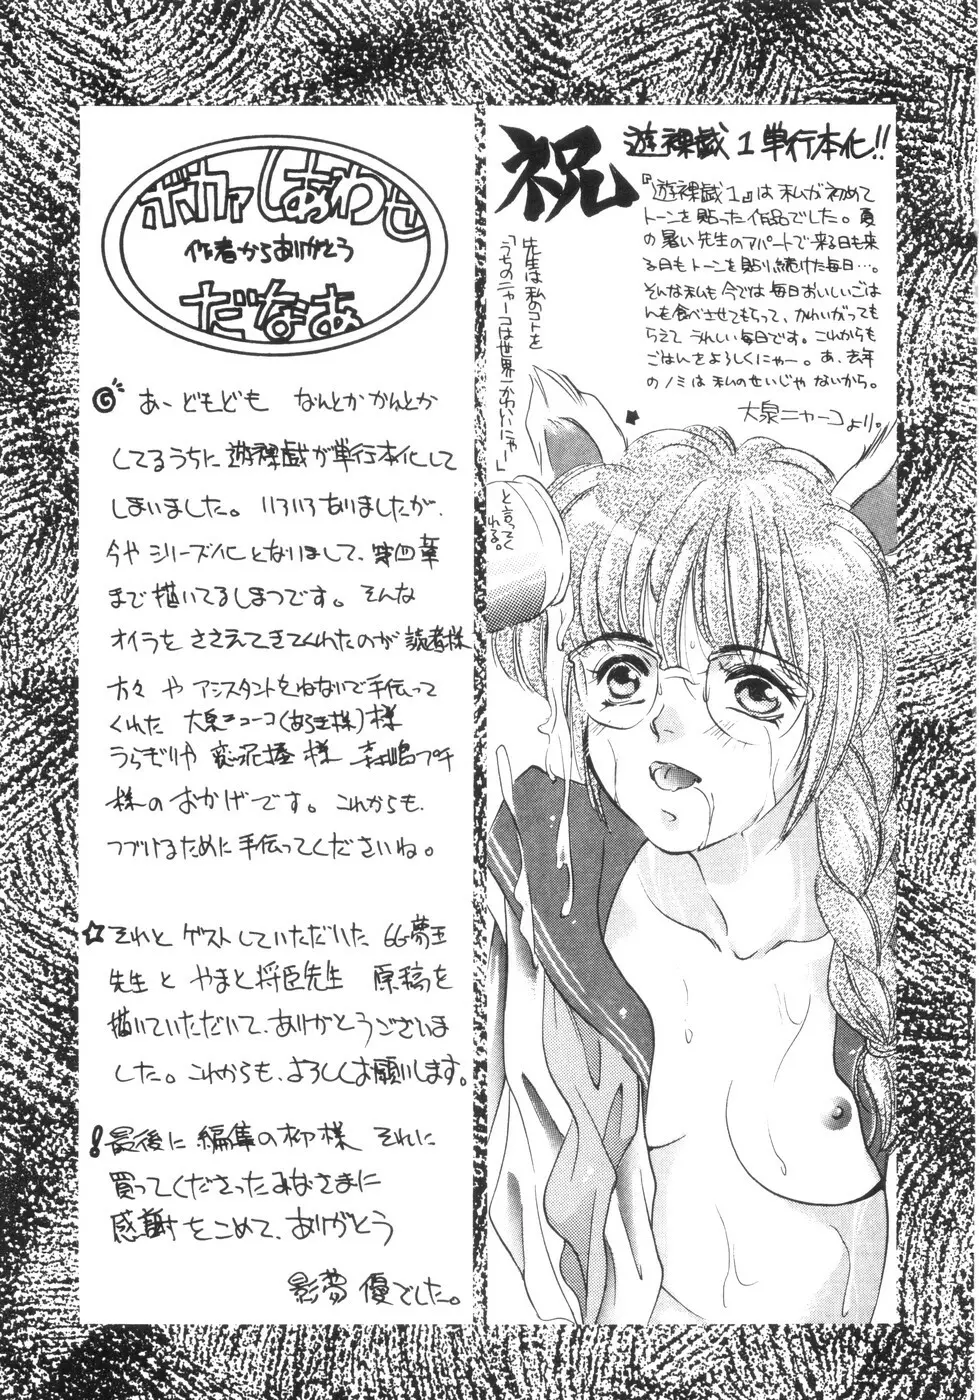 祝
遊裸戯1単行本化!!
『遊裸戯1』は私が初めて
トーンを貼った作品でした。夏
の暑い先生のアパートで来る日も来
る日もトーンを貼り続けた毎日…。
そんな私も今では毎日おいしいごは
んを食べさせてもらって、かわいがっても
らえてうれしい毎日です。これからも
ごはんをよろしくにゃー。あ、去年
のノミは私のせいじゃないから。
大泉ニャーコより。
先生は私のコトを
「うちのニャーコは世界一かわいいにゃー」
と言ってく
れる。
ボカァしあわせ
作者からありがとう
だなあ
あーどもども なんとかかんとか
してるうちに遊裸戯が単行本化して
しまいました。いろいろありましたが、
今やシリーズ化となりまして、第四章
まで描いてるしまつです。そんな
オイラをささえてきてくれたのが読者様
方々やアシスタントをねないで手伝って
くれた 大泉ニャーコ(あろま様)様
うらぎりや 様 プチ
様のおかげです。これからも
つづけるために手伝ってくださいね。
それとゲストしていただいたGG夢王
先生とやまと将臣先生 原稿を
描いていただいて、ありがとうございま
した。これからも、よろしくお願いします。
最後に編集の柳様 それに
買ってくださったみなさまに
感謝をこめて、ありがとう
影夢 優でした。